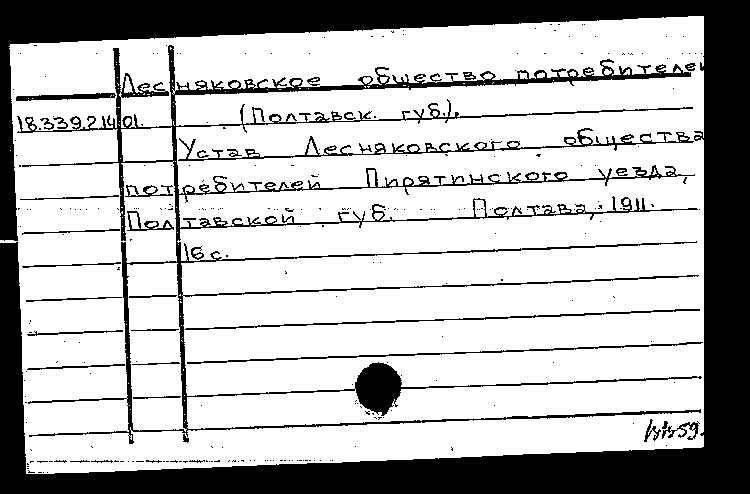 Лесняковское общество потребителей
18.339.2.14 01. (Полтавск. губ.).
Устав Лесняковского общества
потребителей Пирятинского уезда,
Полтавской губ. Полтава, 1911.
16 с.